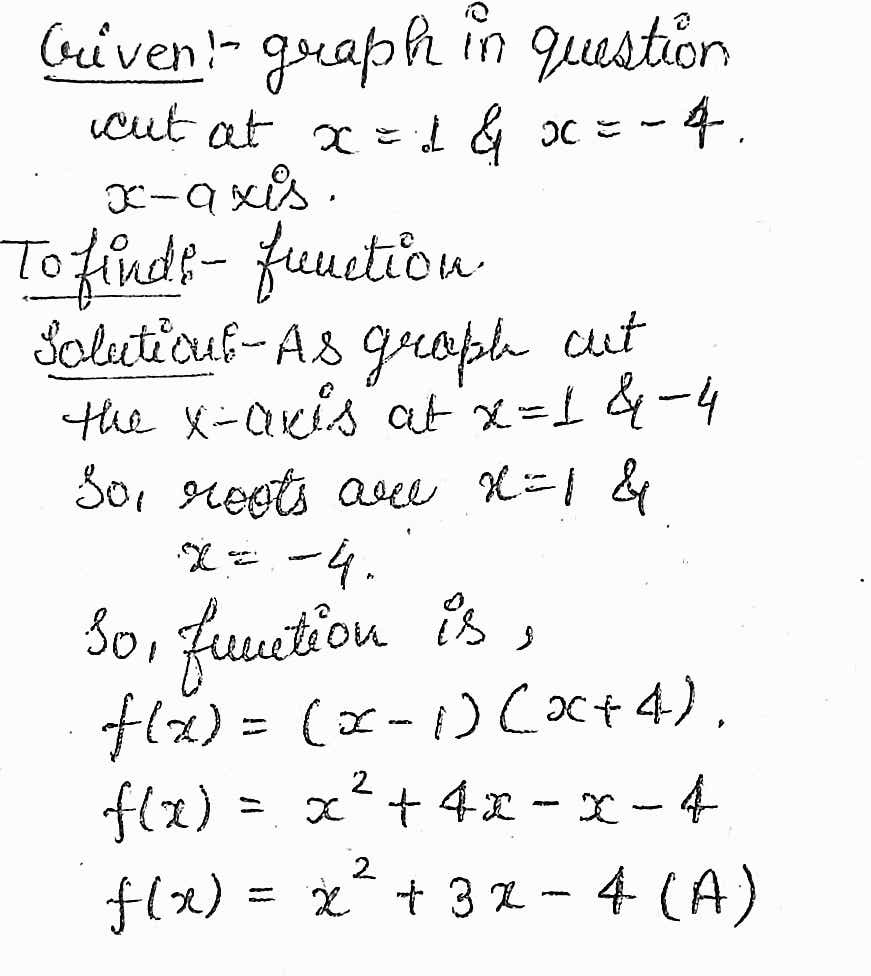 Given:- graph in question
cut at x = 1 & x = - 4.
x-axis.
To find:- function
Solution:- As graph cut
the x-axis at x=1 & -4
So, roots are x=1 &
x = -4.
So, function is,
f(x) = (x-1)(x+4).
f(x) = x² + 4x - x - 4
f(x) = x² + 3x - 4 (A)